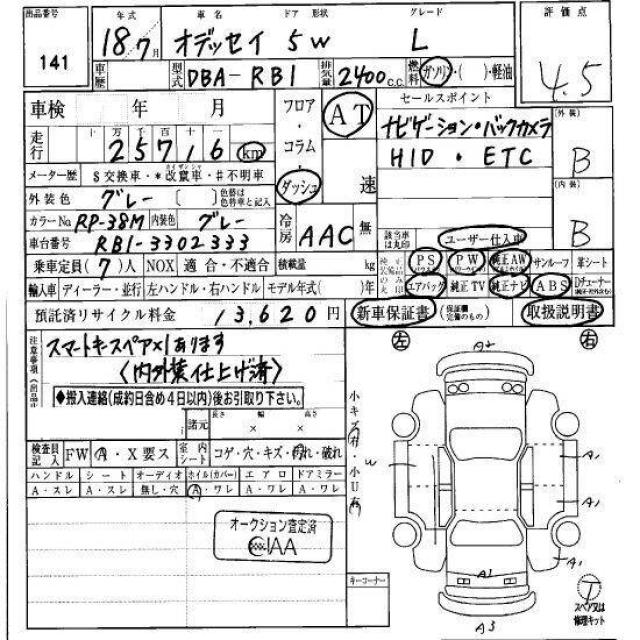 出品番号 年式 車名 ドア 形状 グレード 評価点
141 18 7月 オデッセイ 5W L 4.5
車歴 型式 DBA-RB1 排気量 2400 c.c. 燃料 ガソリン・( )・軽油
車検 年 月 フロア・コラム・ダッシュ AT 速 セールスポイント
走行 十 万 千 百 十 一
25716 km
ナビゲーション・バックカメラ
HID・ETC
外装 B
内装 B
メーター歴 $交換車・*改竄車・#不明車
外装色 グレー 〔 〕 色替は色替車と記入
カラーNo RP-38M 内装色 グレー 冷房 AAC 無 該当車は丸印 ユーザー仕入車
車台番号 RB1-3302333
乗車定員(7)人 NOX 適合・不適合 積載量 kg
PS PW 純正AW サンルーフ 革シート
輸入車 ディーラー・並行 左ハンドル・右ハンドル モデル年式( )年
エアバッグ 純正TV 純正ナビ ABS Dチューナー
預託済リサイクル料金 13,620円 新車保証書 (保証欄完備のもの) 取扱説明書
注意事項
スマートキースペア×1あります
〈内外装仕上げ済〉
◆搬入連絡(成約日含め4日以内)後お引取り下さい。
諸元 長さ 幅 高さ
× ×
検査員記入 FW A・X要ス 室内シート コゲ・穴・キズ・汚れ・破れ
ハンドル シート オーディオ ホイル(カバー) エアロ ドアミラー
A・スレ A・スレ 無し・穴 A・ワレ A・ワレ A・ワレ
オークション査定済
CIAA
小キズ有・小U有
キーコーナー
左 右
A2
W
A1
A1
A1
A1
A3
T
スペア又は
修理キット